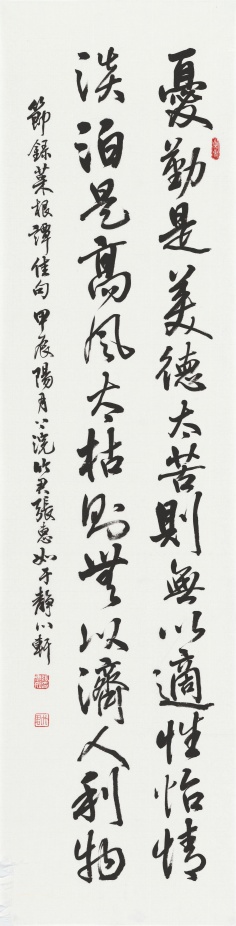 憂勤是美德太苦則無以適性怡情
淡泊是高風太枯則無以濟人利物
節錄菜根譚佳句甲辰陽月上浣竹君張惠如於靜心軒